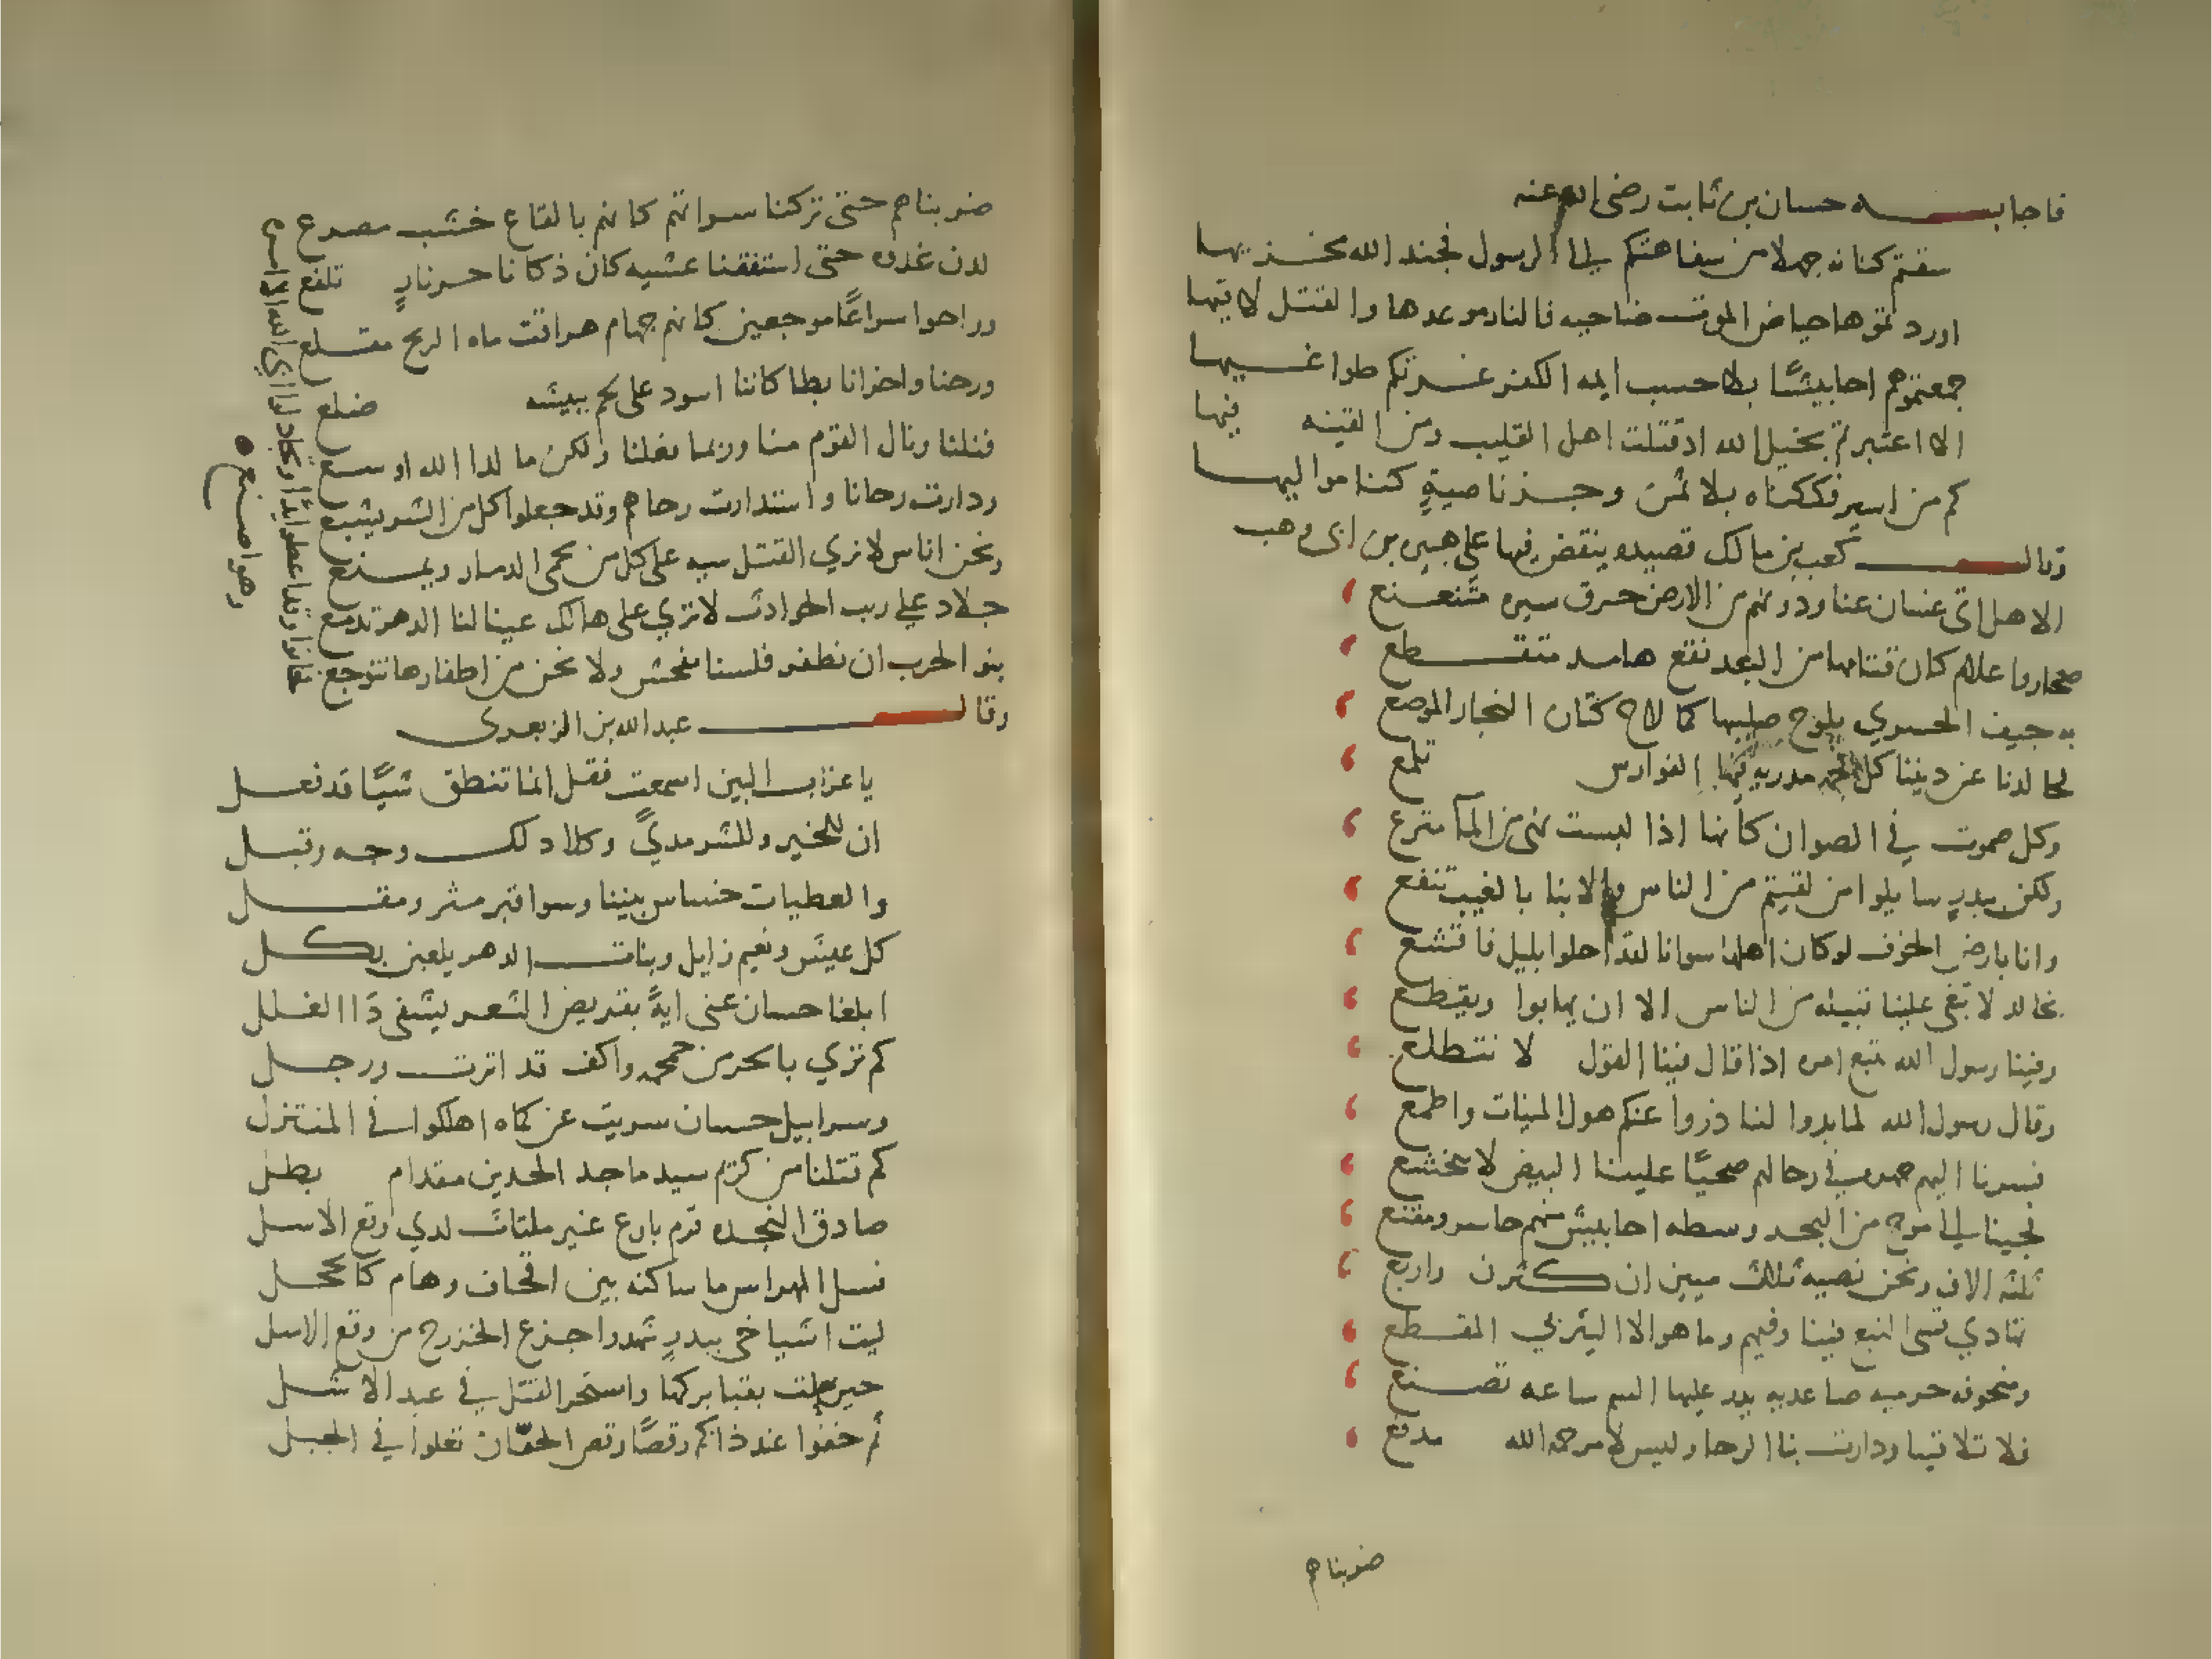 فاجابه حسان بن ثابت رضي الله عنه
سقتم كنانه جهلا من سفاهتكم الى الرسول فجند الله مخزيها
اوردتموها حياض الموت ضاحيه فالنار موعدها والقتل لاقيها
جمعتموهم احابيشًا بلا حسب ايمه الكفر غرتكم طواغيها
الا اعتبرتم بخيل الله اذ قتلت اهل القليب ومن القينه فيها
كم من اسير فككناه بلا ثمن وجز ناصيةٍ كنا مواليها
وقال كعب بن مالك قصيده ينقض فيها على هبيره بن ابي وهب
الا هل اتى غسان عنا ودونهم من الارض خرق سيره متنعنع
صحار واعلام كان قتامها من البعد نقع هامد متقطع
به جيف الحسري يلوح صليبها كما لاح كتان التجار الموضع
مجالدنا عن ديننا كل فخمه مدربه فيها الفوارس تلمع
وكل صموت في الصوان كانها اذا لبست نهي من المآ مترع
ولكن ببدرٍ سايلوا من لقيتم من الناس والانبا بالغيب تنفع
وانا بارض الخوف لو كان اهلها سوانا لقد احلوا بليل فاقشعوا
نجالد لا تبقى علينا قبيله من الناس الا ان يهابوا ويقطع
وفينا رسول الله نتبع امره اذا قال فينا القول لا نتطلع
وقال رسول الله لما بدوا لنا ذروا عنكم هول المنيات واطمع
فسرنا اليهم جهره في رحالهم ضحيًا علينا البيض لا نخشع
فجينا الى موج من البحر وسطه احابيش منهم حاسر ومقنع
ثلثه الاف ونحن نصيه ثلاث ميين ان كثرن واربع
تهادي قسى النبع فينا وفيهم وما هو الا اليثربي المقطع
ومنجوفه حرميه صاعديه يذر عليها السم ساعه تصنع
فلا تلاقينا ودارت بنا الرحا وليس لامر حمه الله مدفع
ضربناهم
ضربناهم حتى تركنا سراتهم كانهم بالقاع خشب مصرع
لدن غدوه حتى استفقنا عشيه كان ذكانا حر نارٍ تلفع
وراحوا سراعًا موجعين كانهم جهام هراقت ماه الريح مقلع
ورحنا واخرانا بطا كاننا اسود على لحم ببيشه ضلع
فنلنا ونال القوم منا وربما فعلنا ولكن ما لدا الله اوسع
ودارت رحانا واستدارت رحاهم وقد جعلوا كل من الشر يشبع
ونحن اناس لا نري القتل سبه على كل من يحمي الدمار ويمنع
جلاد علي ريب الحوادث لا نري على هالك عينا لنا الدهر تدمع
بنو الحرب ان نظفر فلسنا بفحش ولا نحن من اظفارها نتوجع
وقال عبد الله بن الزبعرى
يا غراب البين اسمعت فقل انما تنطق شيًا قد فعل
ان للخير وللشر مديً وكلا ذلك وجه وقبل
والعطيات خساس بيننا وسوا قبر مثر ومقل
كل عيش ونعيم زايل وبنات الدهر يلعبن بكل
ابلغا حسان عني ايةً بقريض الشعر يشفي ذا الغلل
كم تري بالحر من جمجمه واكف قد اترت ورجل
وسرابيل حسان سريت عن كماه اهلكوا في المنتزل
كم قتلنا من كريم سيد ماجد الجدين مقدام بطل
صادق النجده قرم بارع غير ملتاث لدي وقع الاسل
فسل المهراس ما ساكنه بين اقحاف وهام كالحجل
ليت اشياخي ببدرٍ شهدوا جزع الخزرج من وقع الاسل
حين بقبا بركها واستحر القتل في عبد الاشل
ثم خفوا عند ذاكم رقصًا رقص الحفان تعلوا في الجبل